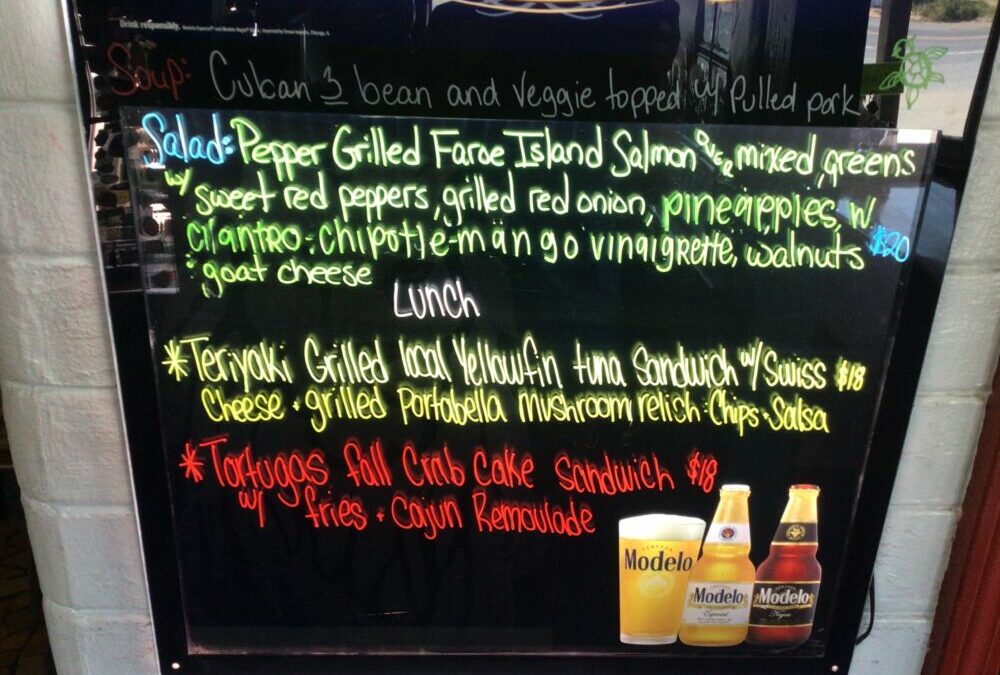 Drink responsibly.
Soup: Cuban 3 bean and veggie topped w/ Pulled pork
Salad: Pepper Grilled Faroe Island Salmon over mixed greens
w/ sweet red peppers, grilled red onion, pineapples, w
cilantro-chipotle-mango vinaigrette, walnuts $20
goat cheese
Lunch
*Teriyaki Grilled local Yellowfin tuna Sandwich w/ Swiss $18
Cheese + grilled Portabella mushroom relish · Chips + Salsa
*Tortugas fall Crab Cake Sandwich $18
w/ fries + Caijun Remoulade
Modelo
Modelo
Especial
Modelo
Negra